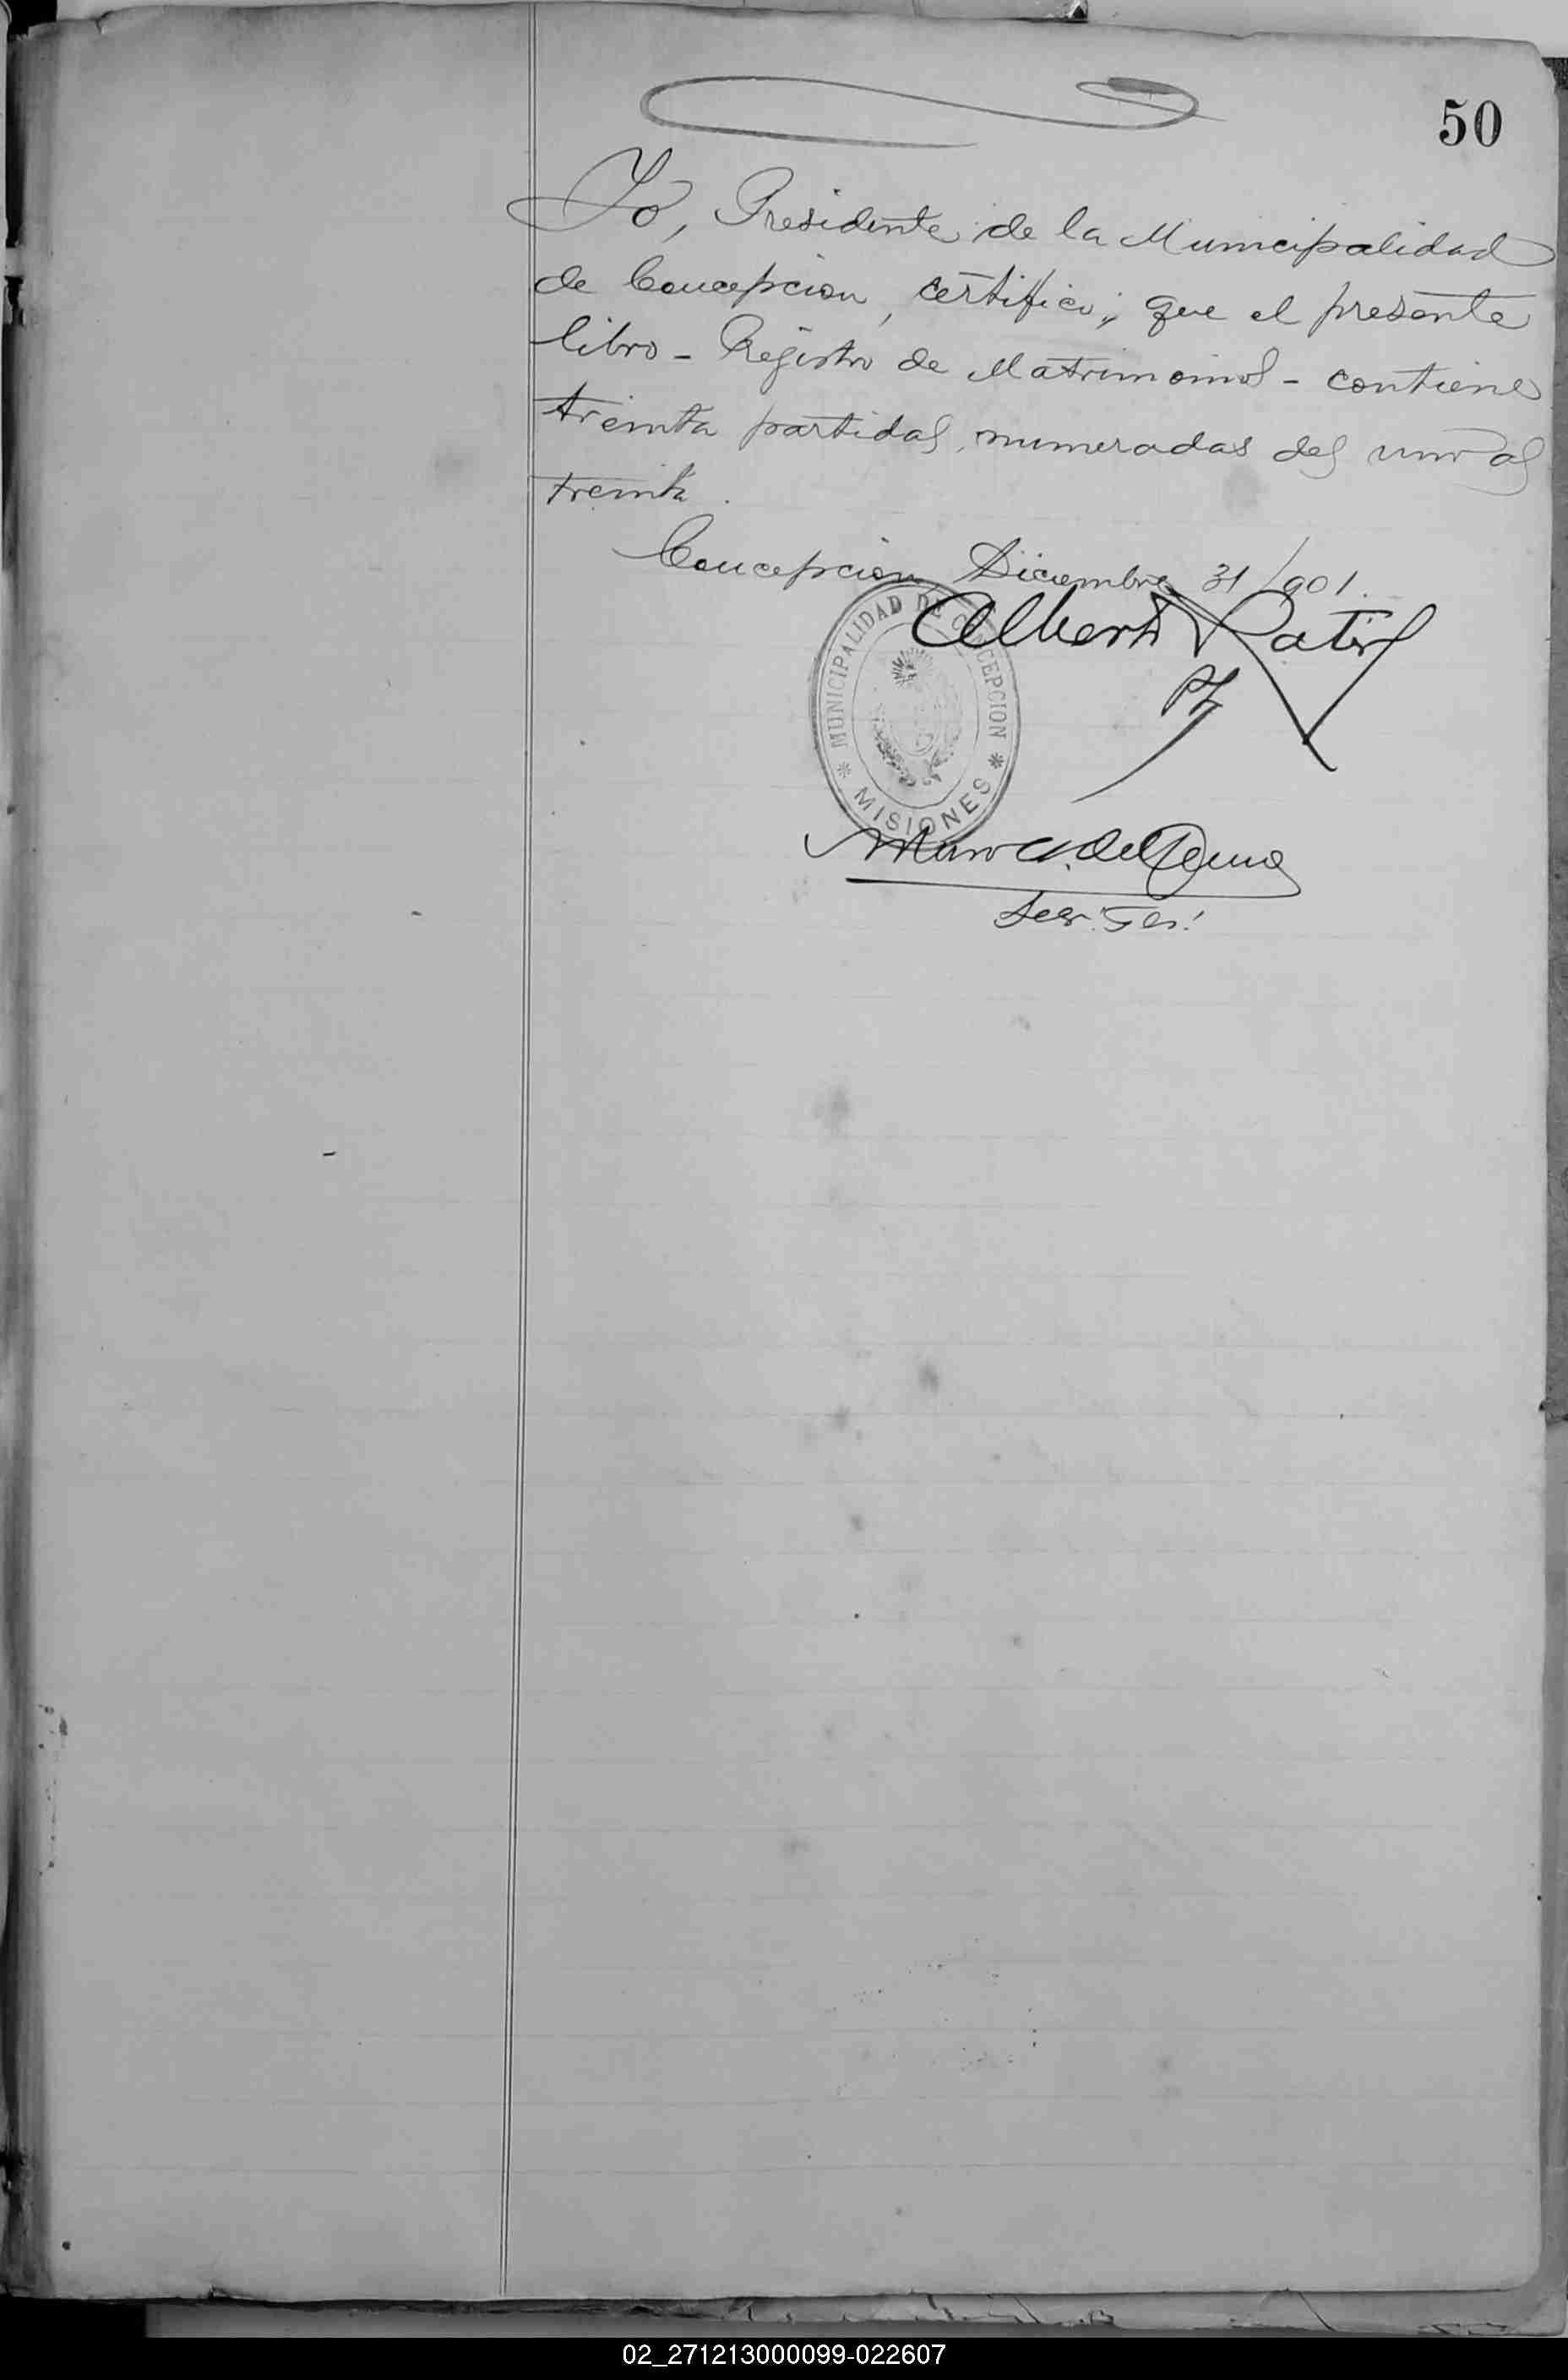 50
Yo, Presidente de la Municipalidad
de Concepcion, certifico; que el presente
libro - Registro de Matrimonios - contiene
treinta partidas, numeradas del uno al
treinta.
Concepcion Diciembre 31/901.
MUNICIPALIDAD DE CONCEPCION
MISIONES
Alberto
02_271213000099-022607